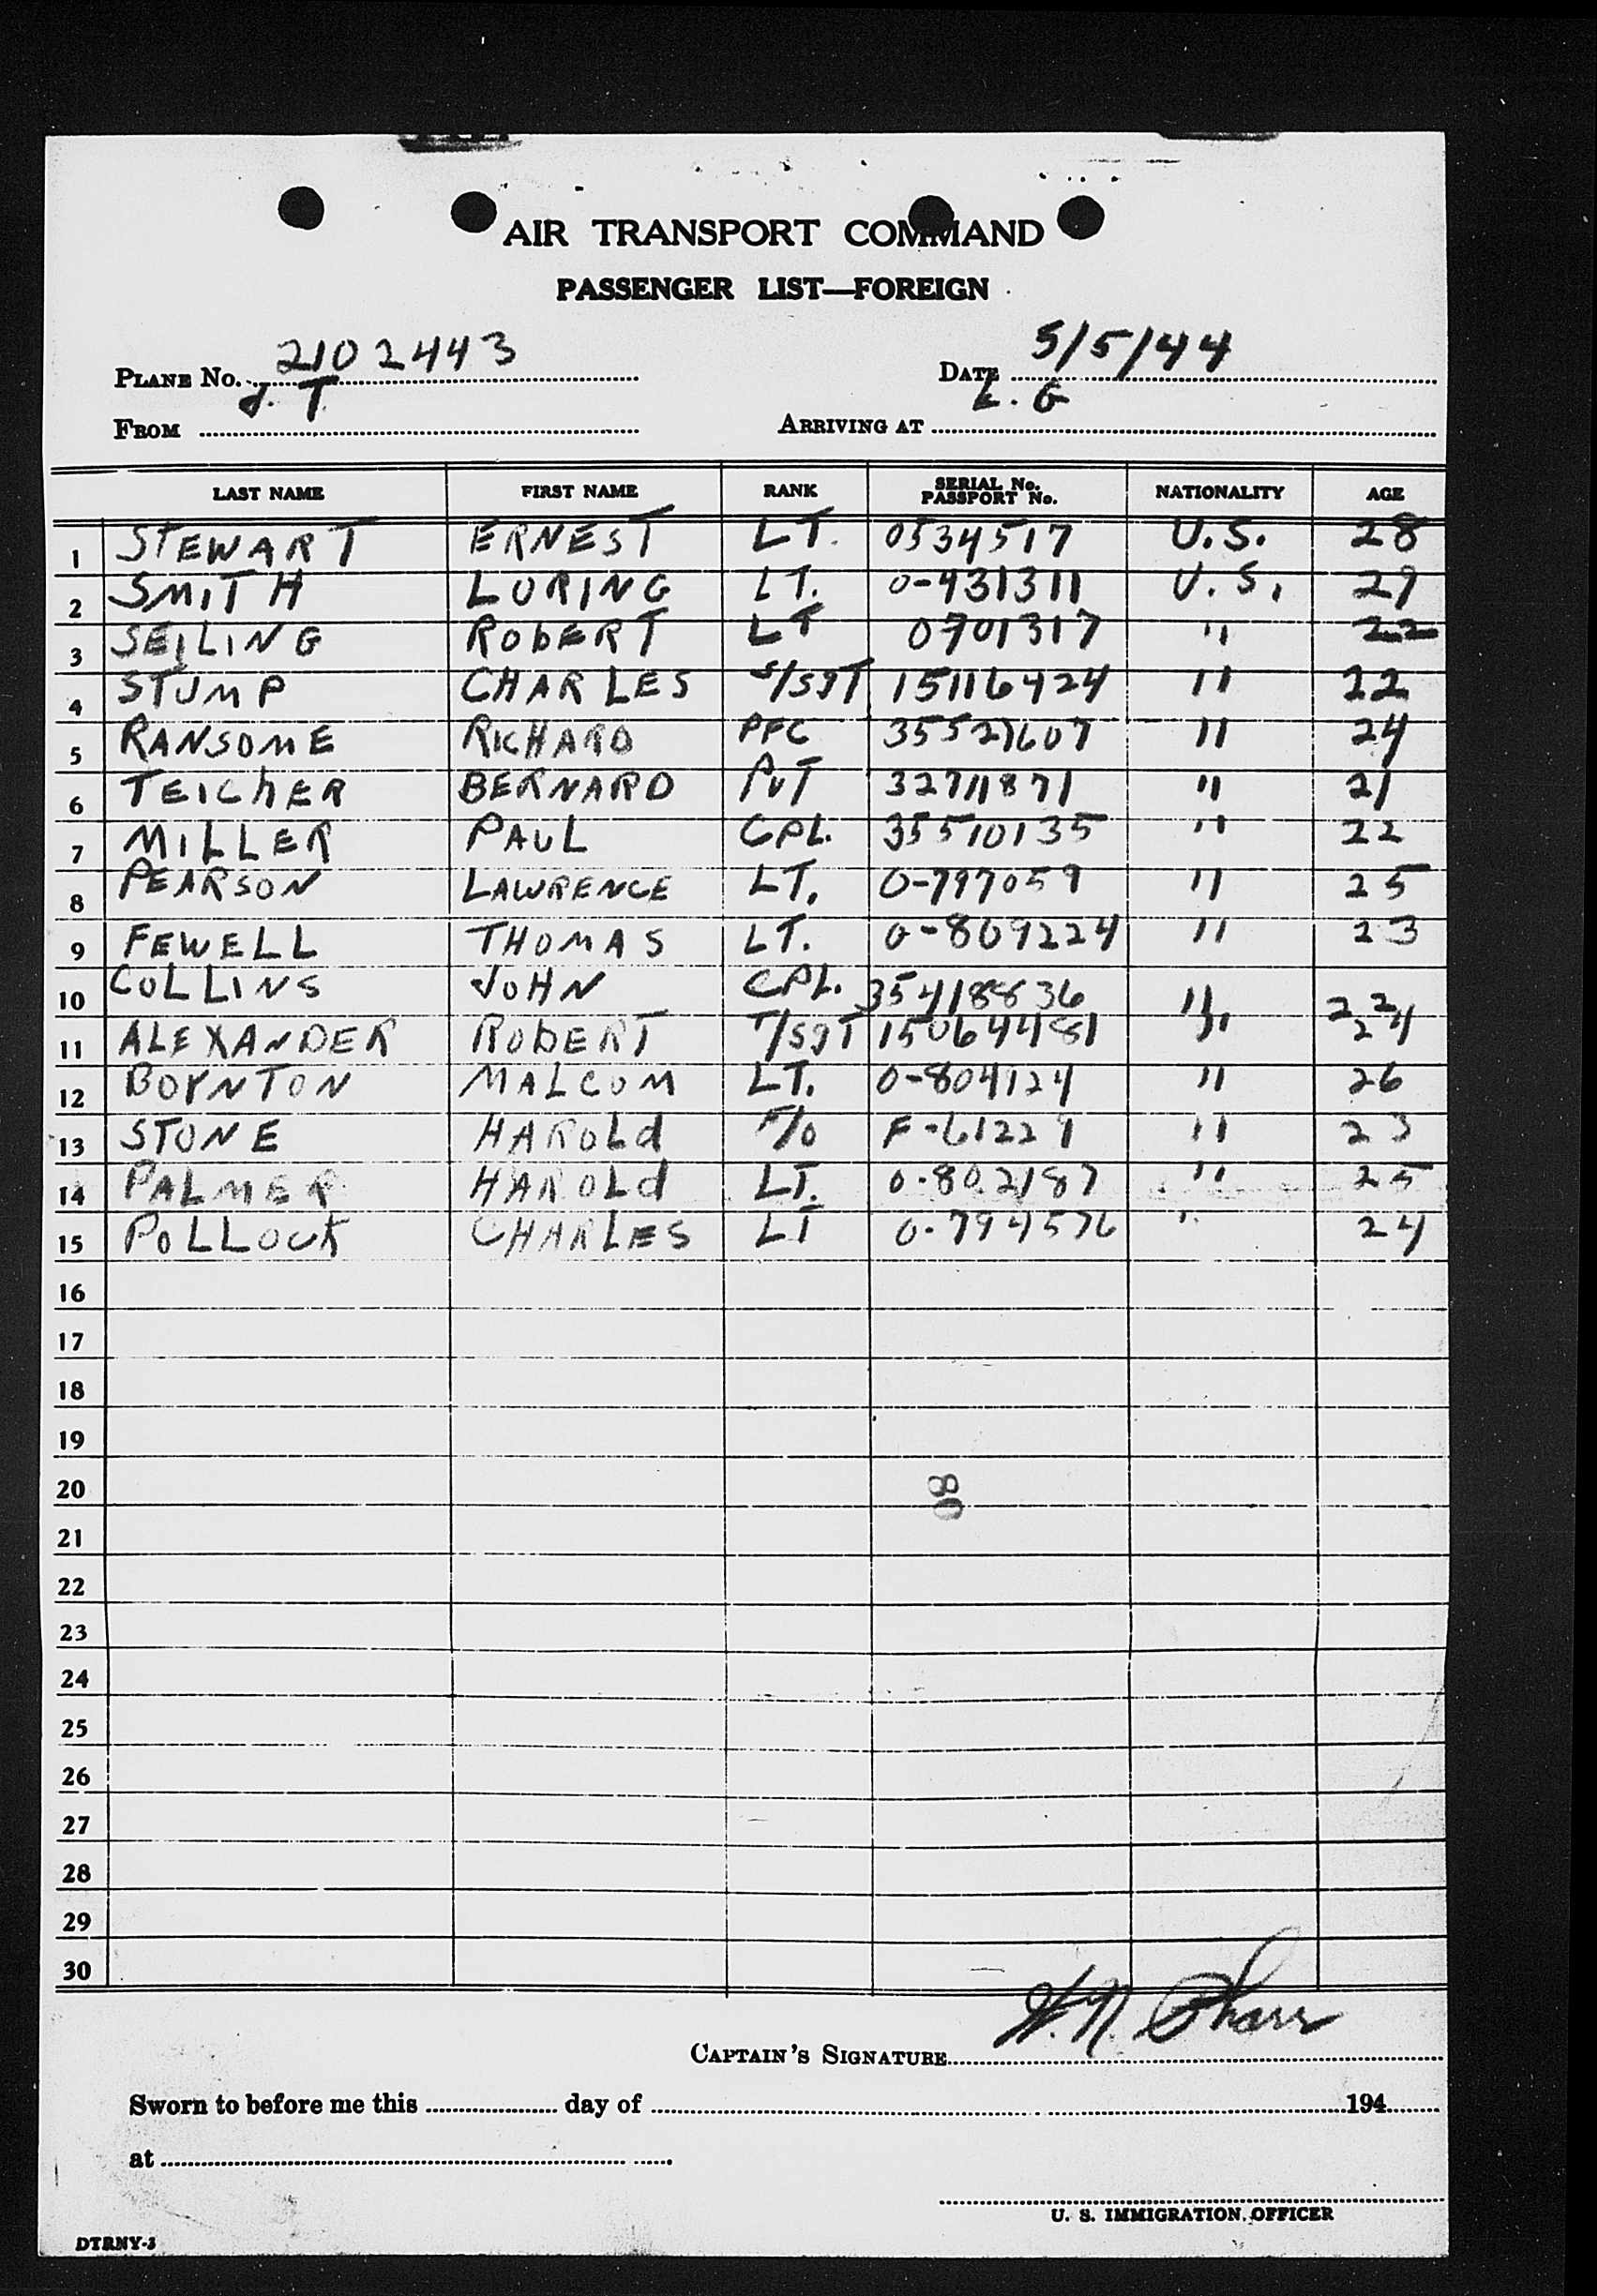 AIR TRANSPORT COMMAND
PASSENGER LIST—FOREIGN
PLANE No. 2102443 DATE 5/5/44
FROM J. T. ARRIVING AT L. G
LAST NAME FIRST NAME RANK SERIAL No. PASSPORT No. NATIONALITY AGE
1 STEWART ERNEST LT. 0534517 U.S. 28
2 SMITH LORING LT. 0-431311 U.S. 29
3 SEILING RObERT LT 0701317 " 22
4 STUMP CHARLES S/SGT 15116424 " 22
5 RANSOME RICHARD PFC 35521607 " 24
6 TEICHER BERNARD PVT 32711871 " 21
7 MILLER PAUL CPL. 35510135 " 22
8 PEARSON LAWRENCE LT. 0-797059 " 25
9 FEWELL THOMAS LT. 0-809224 " 23
10 COLLINS JOHN CPL. 354188836 " 22
11 ALEXANDER RObERT T/SGT 15064481 " 24
12 BOYNTON MALCOM LT. 0-804124 " 26
13 STONE HAROLd F/O F-61229 " 23
14 PALMER HAROLd LT. 0-802187 " 25
15 POLLOCK CHARLES LT 0-794576 " 24
16
17
18
19
20 80
21
22
23
24
25
26
27
28
29
30
CAPTAIN'S SIGNATURE
Sworn to before me this day of 194
at
U. S. IMMIGRATION OFFICER
DTRNY-3